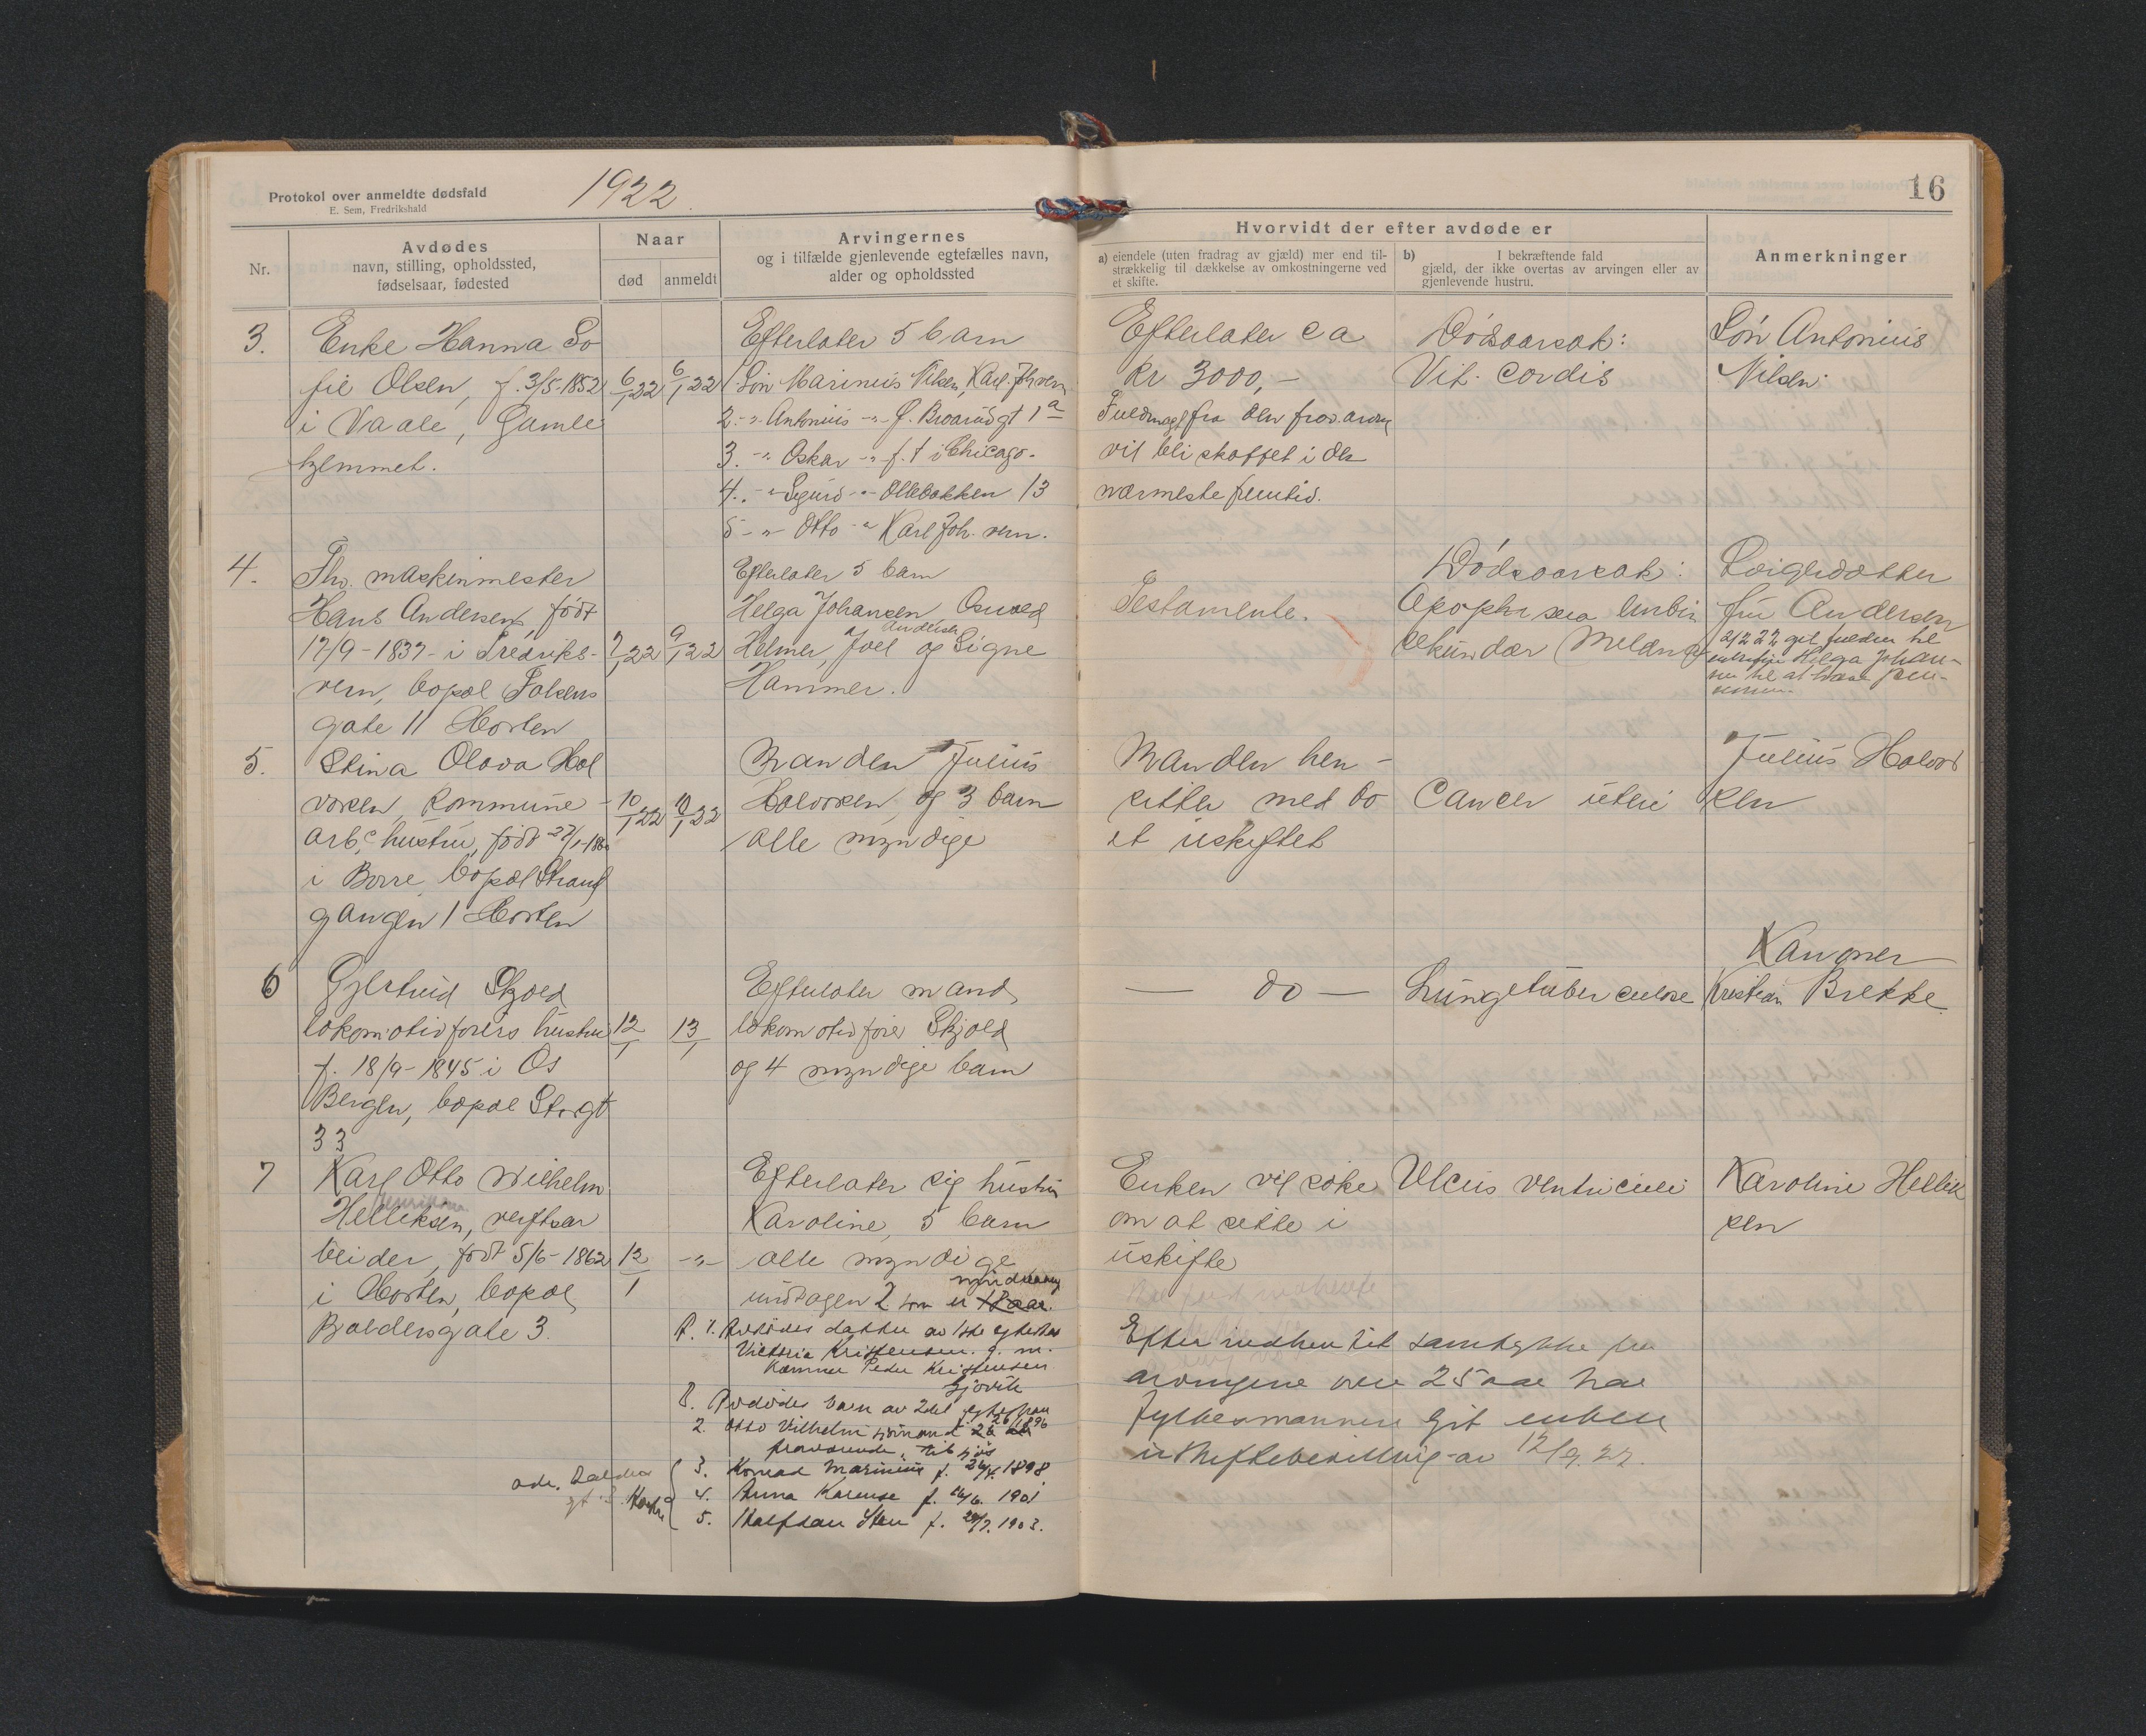 Protokol over anmeldte dødsfald
E. Sem, Fredrikshald
1922.
16
Nr.
Avdødes
navn, stilling, opholdssted,
fødselsaar, fødested
Naar
død
anmeldt
Arvingernes
og i tilfælde gjenlevende egtefælles navn,
alder og opholdssted
Hvorvidt der efter avdøde er
a) eiendele (uten fradrag av gjæld) mer end til-
strækkelig til dækkelse av omkostningerne ved
et skifte.
b) I bekræftende fald
gjæld, der ikke overtas av arvingen eller av
gjenlevende hustru.
Anmerkninger
3.
Enke Hanna So
fie Olsen, f. 3/5-1852
i Vaale, Gamle
hjemmet.
6/1 22
6/1 22
Efterlater 5 barn
1. Søn Marinius Nilsen, Karl Joh. vern
2. -"- Antonius -"- f. gt 1a
3. -"- Oskar -"- f. t i Chicago.
4. -"- Sigurd -"- Ollebakken 13
5 -"- Otto -"- Karl Joh. vern.
Efterlater ca
Kr 3000,-
Fuldmagt fra den
vil bli skaffet i den
nærmeste fremtid.
Dødsaarsak:
Vit. cordis
Søn Antonius
Nilsen.
4.
Fhv. maskinmester
Hans Andersen, født
17/9-1837- i Fredriks-
vern, bopæl Falsens
gate 11 Horten
7/1 22
9/1 22
Efterlater 5 barn
Helga Johansen, Osvald
Andersen
Helmer, Joel og Signe
Hammer.
Testamente.
Dødsaarsak:
sekundær
Svigerdatter
fru Andersen
2/2 22 git fuldm til
Helga Johan-
sen til at
5.
Stina Olava Hal
vorsen, kommune-
arb.s hustru, født 27/1-1860
i Borre, bopæl Strand
gangen 1 Horten
10/1 22
10/1 22
Manden Julius
Halvorsen, og 3 barn
alle myndige
Manden hen-
sitter med bo
et uskiftet
Cancer uteri
Julius Halvor
sen
6
Gjertrud Skjold
lokomotivførers hustru
f. 18/9-1845 i Os
Bergen, bopæl Storgt
33
12/1
13/1
Efterlater mand
lokomotivfører Skjold
og 4 myndige barn
— do —
Lungetuberculose
Kanoner
Kristian Brekke
7
Karl Otto Wilhelm
Henriksen
Helliksen, verftsar
beider, født 5/6-1862
i Horten, bopæl
Baldersgate 3.
12/1
-"-
Efterlater sig hustru
Karoline, 5 barn
alle myndige
undtagen 2 som er 18 aar.
A. 1. Avdødes datter av 1ste egteskap
Victoria Kristensen. g. m.
Peder Kristensen
Gjøvik
B. Avdødes barn av 2det egteskap
2. Otto Vilhelm sjømand 26 1896
fraværende, til sjøs
3. Konrad Marinius f. 24/4. 1898
4. Anna Karense f. 16/6. 1901
5. Halfdan Sten f. 29/7. 1903.
adr. Balders
gt 3. Horten
Enken vil søke
om at sitte i
uskifte
Efter indhentet samtykke fra
arvingene over 25 aar har
fylkesmannen git enken
uskiftebevilling av 12/9. 22.
Ulcus ventriculi
Karoline Hellik
sen